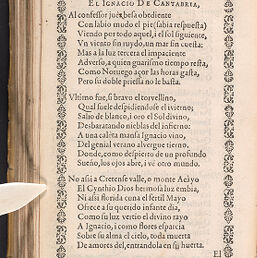 EL IGNACIO DE CANTABRIA,
Al confessor juez, besa obediente
Con labio mudo el pie (sabia respuesta)
Viendo por todo aquel, i el sol siguiente,
Vn viento sin ruydo, un mar sin cuesta:
Mas a la luz tercera el impaciente
Adverso, a quien guarismo tiempo resta,
Como Noruego açor las horas gasta,
Pero su doble priessa no le basta.
Vltimo fue, si bravo el torvellino,
Qual suele despidiendose el ivierno;
Salio de blanco, i oro el Sol divino,
Desbaratando nieblas del infierno:
A una caleta mansa Ignacio vino,
Del genial verano alvergue tierno,
Donde, como despierto de un profundo
Sueño, los ojos abre, i vè otro mundo.
No assi a Cretense valle, o monte Acayo
El Cynthio Dios hermosa luz embia,
Ni assi florida cuna el fertil Mayo
Ofrece a su querido infante dia,
Como su luz vertio el divino rayo
A Ignacio, i como flores esparcia
Sobre su alma el cielo, toda muerta
De amores del, entrandola en su huerta.
El